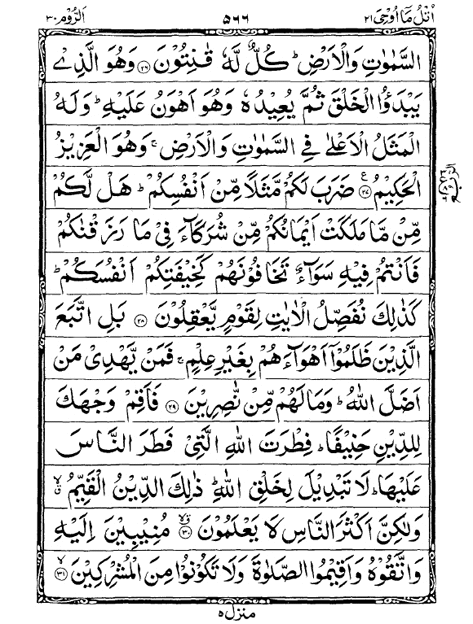 اتل ما اوحی ۲۱ ۵۶۶ الروم ۳۰
السَّمٰوٰتِ وَالۡاَرۡضِؕ كُلٌّ لَّهٗ قٰنِتُوۡنَ ﴿۲۶﴾ وَهُوَ الَّذِىۡ
يَبۡدَؤُا الۡخَلۡقَ ثُمَّ يُعِيۡدُهٗ وَهُوَ اَهۡوَنُ عَلَيۡهِؕ وَلَهُ
الۡمَثَلُ الۡاَعۡلٰى فِى السَّمٰوٰتِ وَالۡاَرۡضِۚ وَهُوَ الۡعَزِيۡزُ
الۡحَكِيۡمُ ﴿۲۷﴾ ضَرَبَ لَكُمۡ مَّثَلًا مِّنۡ اَنۡفُسِكُمۡؕ هَلْ لَّكُمۡ
مِّنۡ مَّا مَلَكَتۡ اَيۡمَانُكُمۡ مِّنۡ شُرَكَآءَ فِىۡ مَا رَزَقۡنٰكُمۡ
فَاَنۡتُمۡ فِيۡهِ سَوَآءٌ تَخَافُوۡنَهُمۡ كَخِيۡفَتِكُمۡ اَنۡفُسَكُمۡؕ
كَذٰلِكَ نُفَصِّلُ الۡاٰيٰتِ لِقَوۡمٍ يَّعۡقِلُوۡنَ ﴿۲۸﴾ بَلِ اتَّبَعَ
الَّذِيۡنَ ظَلَمُوۡۤا اَهۡوَآءَهُمۡ بِغَيۡرِ عِلۡمٍۚ فَمَنۡ يَّهۡدِىۡ مَنۡ
اَضَلَّ اللّٰهُؕ وَمَا لَهُمۡ مِّنۡ نّٰصِرِيۡنَ ﴿۲۹﴾ فَاَقِمۡ وَجۡهَكَ
لِلدِّيۡنِ حَنِيۡفًاؕ فِطۡرَتَ اللّٰهِ الَّتِىۡ فَطَرَ النَّاسَ
عَلَيۡهَاؕ لَا تَبۡدِيۡلَ لِخَلۡقِ اللّٰهِؕ ذٰلِكَ الدِّيۡنُ الۡقَيِّمُۙ
وَلٰكِنَّ اَكۡثَرَ النَّاسِ لَا يَعۡلَمُوۡنَ ﴿۳۰﴾ مُنِيۡبِيۡنَ اِلَيۡهِ
وَاتَّقُوۡهُ وَاَقِيۡمُوا الصَّلٰوةَ وَلَا تَكُوۡنُوۡا مِنَ الۡمُشۡرِكِيۡنَ ﴿۳۱﴾
منزل ۵